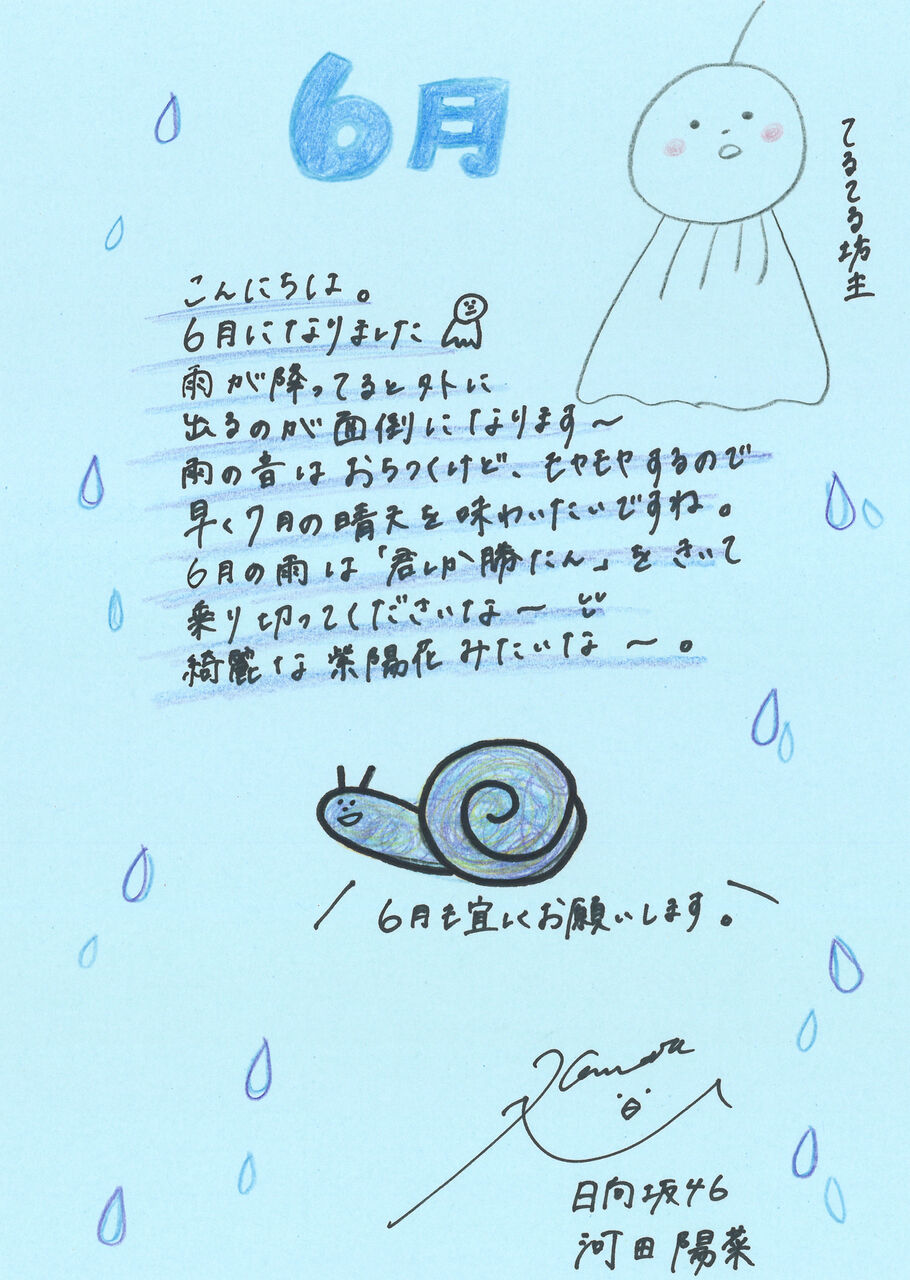 6月
てるてる坊主
こんにちは。
6月になりました
雨が降ってると外に
出るのが面倒になります〜
雨の音はおちつくけど、モヤモヤするので
早く7月の晴天を味わいたいですね。
6月の雨は「君しか勝たん」をきいて
乗り切ってくださいな〜
綺麗な紫陽花みたいな〜。
6月も宜しくお願いします。
日向坂46
河田陽菜